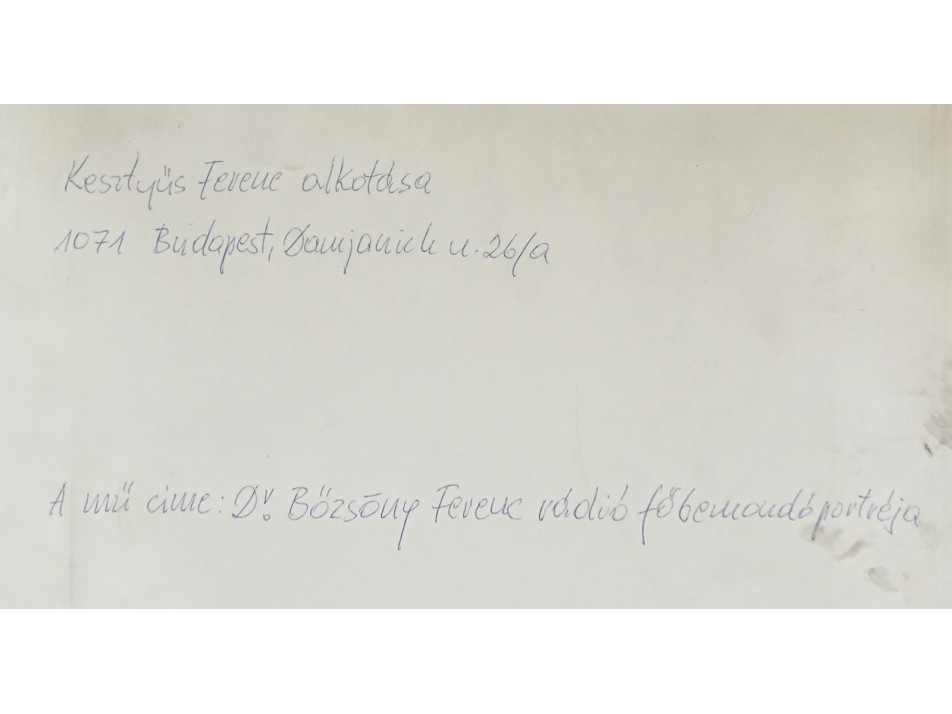 Kesztyüs Ferenc alkotása
1071 Budapest, Damjanich u. 26/a
A mű cime: Dr. Bőzsöny Ferenc rádió főbemondó portréja